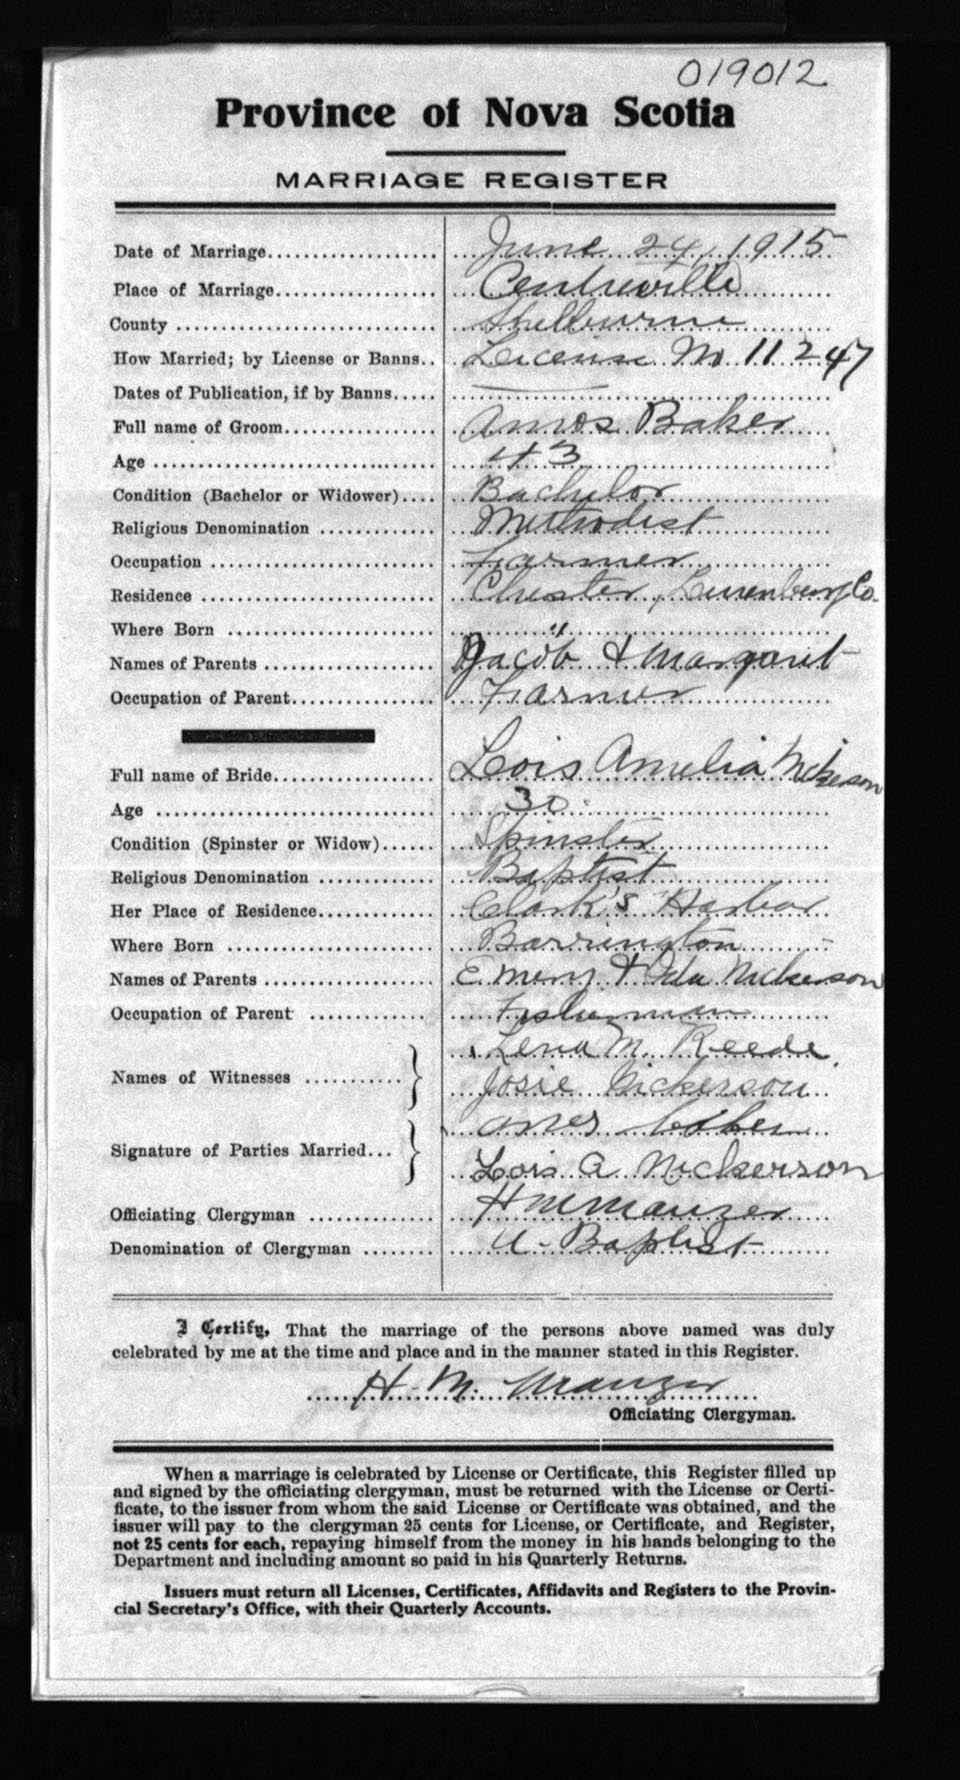 019012
Province of Nova Scotia
MARRIAGE REGISTER
Date of Marriage................... June 24, 1915
Place of Marriage.................. Centreville
County ............................ Shelburne
How Married; by License or Banns.. License No 11247
Dates of Publication, if by Banns.....
Full name of Groom................. Amos Baker
Age ............................... 43
Condition (Bachelor or Widower).... Bachelor
Religious Denomination ............ Methodist
Occupation ........................ Farmer
Residence ......................... Chester, Lunenburg Co.
Where Born ........................ "
Names of Parents .................. Jacob & Margaret
Occupation of Parent............... Farmer
Full name of Bride................. Lois Amelia Nickerson
Age ............................... 30
Condition (Spinster or Widow)...... Spinster
Religious Denomination ............ Baptist
Her Place of Residence............. Clark's Harbor
Where Born ........................ Barrington
Names of Parents .................. Emery & Ada Nickerson
Occupation of Parent .............. Fisherman
Names of Witnesses ........... } Lena M. Reede
Josie Nickerson
Signature of Parties Married... } Amos Baker
Lois A Nickerson
Officiating Clergyman ............. H M Manzer
Denomination of Clergyman ........ U. Baptist
I Certify, That the marriage of the persons above named was duly
celebrated by me at the time and place and in the manner stated in this Register.
H. M. Manzer
Officiating Clergyman.
When a marriage is celebrated by License or Certificate, this Register filled up
and signed by the officiating clergyman, must be returned with the License or Certi-
ficate, to the issuer from whom the said License or Certificate was obtained, and the
issuer will pay to the clergyman 25 cents for License, or Certificate, and Register,
not 25 cents for each, repaying himself from the money in his hands belonging to the
Department and including amount so paid in his Quarterly Returns.
Issuers must return all Licenses, Certificates, Affidavits and Registers to the Provin-
cial Secretary's Office, with their Quarterly Accounts.